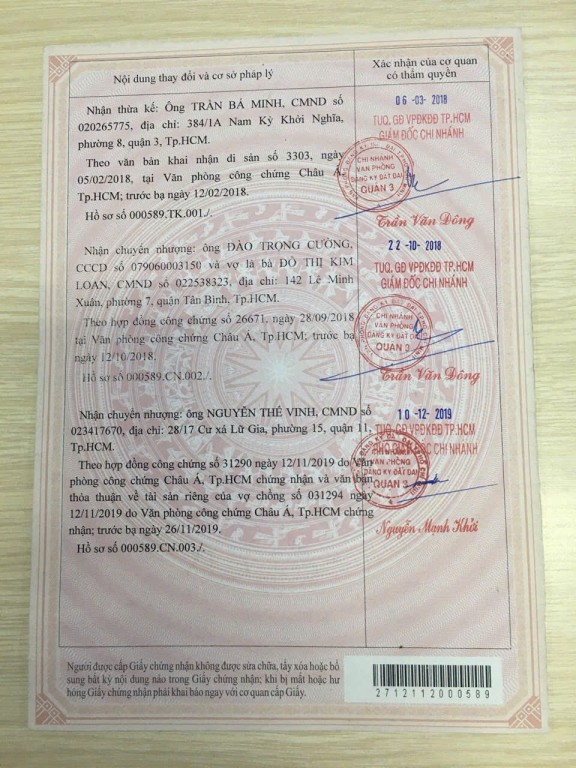 Nội dung thay đổi và cơ sở pháp lý
Xác nhận của cơ quan
có thẩm quyền
Nhận thừa kế: Ông TRẦN BÁ MINH, CMND số
020265775, địa chỉ: 384/1A Nam Kỳ Khởi Nghĩa,
phường 8, quận 3, Tp.HCM.
Theo văn bản khai nhận di sản số 3303, ngày
05/02/2018, tại Văn phòng công chứng Châu Á,
Tp.HCM; trước bạ ngày 12/02/2018.
Hồ sơ số 000589.TK.001./.
06-03-2018
TUQ. GĐ VPĐKĐĐ TP.HCM
GIÁM ĐỐC CHI NHÁNH
CHI NHÁNH
VĂN PHÒNG
ĐĂNG KÝ ĐẤT ĐAI
QUẬN 3
Trần Văn Đông
Nhận chuyển nhượng: ông ĐÀO TRỌNG CƯỜNG,
CCCD số 079060003150 và vợ là bà ĐỖ THỊ KIM
LOAN, CMND số 022538323, địa chỉ: 142 Lê Minh
Xuân, phường 7, quận Tân Bình, Tp.HCM.
Theo hợp đồng công chứng số 26671, ngày 28/09/2018
tại Văn phòng công chứng Châu Á, Tp.HCM; trước bạ
ngày 12/10/2018.
Hồ sơ số 000589.CN.002./.
22-10-2018
TUQ. GĐ VPĐKĐĐ TP.HCM
GIÁM ĐỐC CHI NHÁNH
CHI NHÁNH
VĂN PHÒNG
ĐĂNG KÝ ĐẤT ĐAI
QUẬN 3
Trần Văn Đông
Nhận chuyển nhượng: ông NGUYỄN THẾ VINH, CMND số
023417670, địa chỉ: 28/17 Cư xá Lữ Gia, phường 15, quận 11,
Tp.HCM.
Theo hợp đồng công chứng số 31290 ngày 12/11/2019 do Văn
phòng công chứng Châu Á, Tp.HCM chứng nhận và văn bản
thỏa thuận về tài sản riêng của vợ chồng số 031294 ngày
12/11/2019 do Văn phòng công chứng Châu Á, Tp.HCM chứng
nhận; trước bạ ngày 26/11/2019.
Hồ sơ số 000589.CN.003./.
10-12-2019
TUQ. GĐ VPĐKĐĐ TP.HCM
PHÓ GIÁM ĐỐC CHI NHÁNH
CHI NHÁNH
VĂN PHÒNG
ĐĂNG KÝ ĐẤT ĐAI
QUẬN 3
Nguyễn Mạnh Khởi
Người được cấp Giấy chứng nhận không được sửa chữa, tẩy xóa hoặc bổ
sung bất kỳ nội dung nào trong Giấy chứng nhận; khi bị mất hoặc hư
hỏng Giấy chứng nhận phải khai báo ngay với cơ quan cấp Giấy.
2712112000589